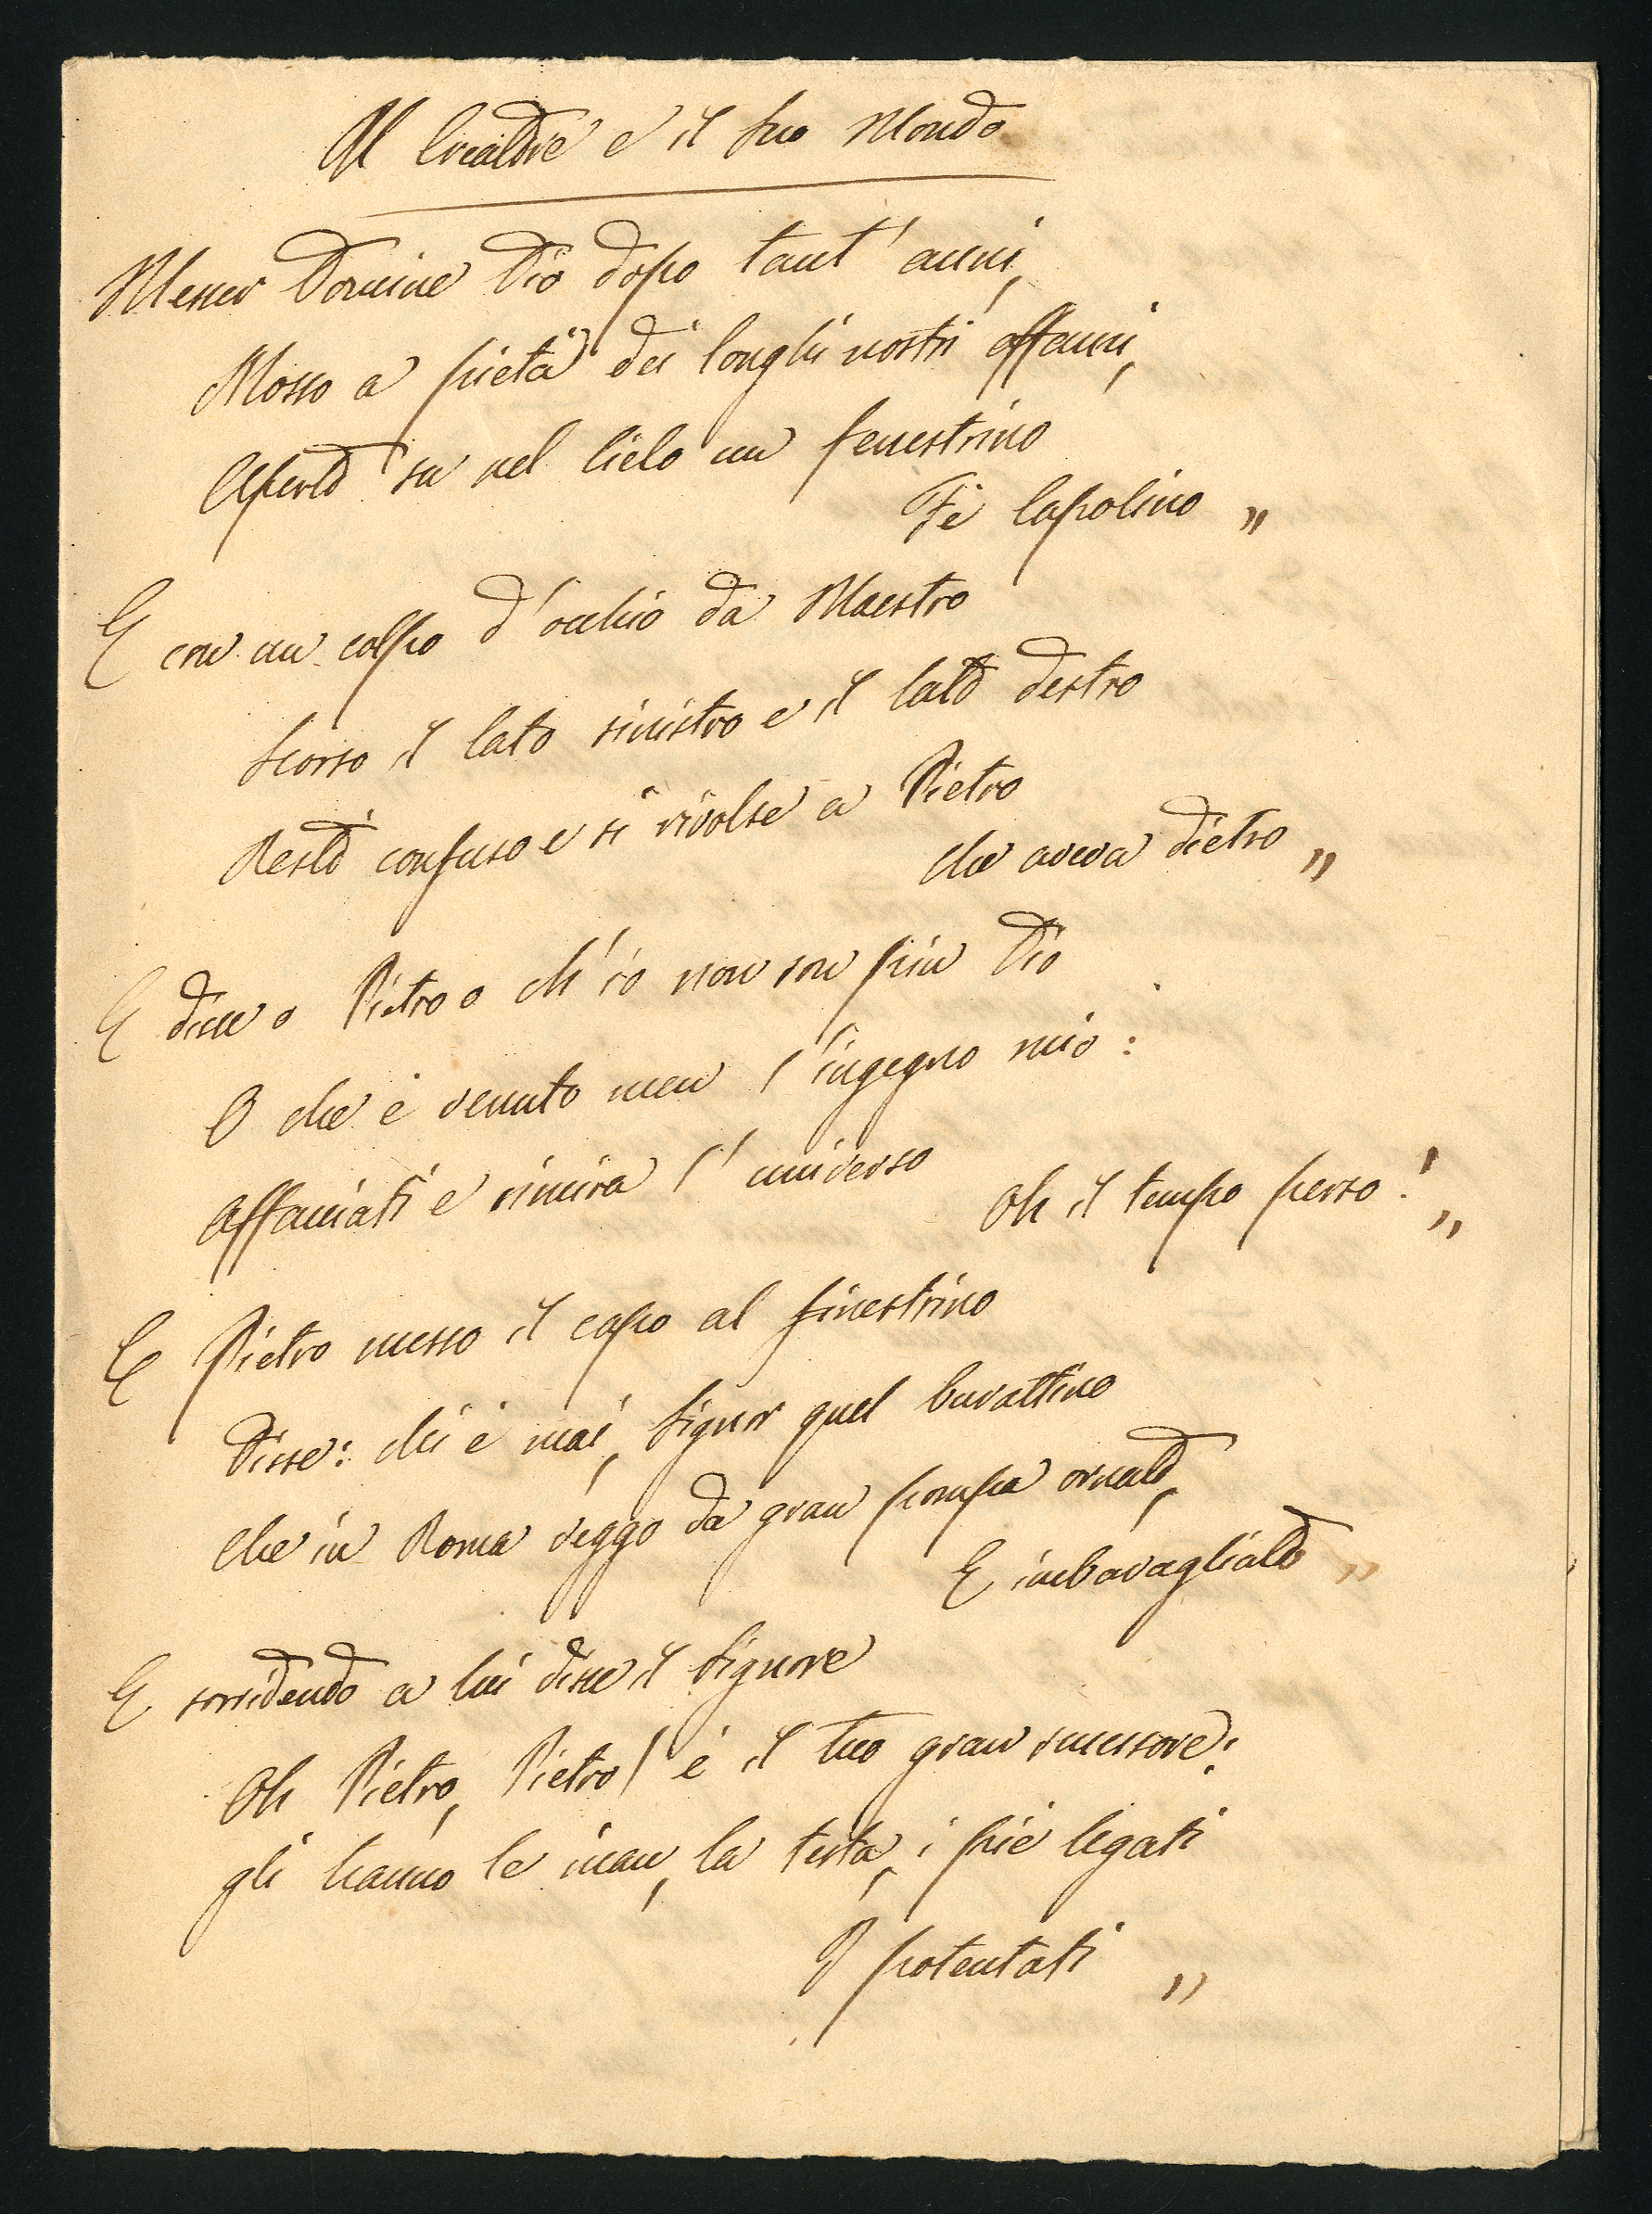 Il Creatore e il suo Mondo
Messer Domine Dio dopo tant' anni,
Mosso a pietà dei longhi nostri affanni,
Aperto su nel Cielo un fenestrino
Fè Capolino „
E con un colpo d'occhio da Maestro
Scorso il lato sinistro e il lato destro
Restò confuso e si rivolse a Pietro
che aveva dietro „
E disse o Pietro o ch'io non son più Dio
O che è venuto men l'ingegno mio:
Affacciati e rimira l'universo
Oh il tempo perso! „
E Pietro messo il capo al finestrino
Disse: chi è mai, Signor quel burattino
Che in Roma veggo da gran pompa ornato,
E imbavagliato „
E sorridendo a lui disse il Signore
Oh Pietro, Pietro! è il tuo gran successore;
gli hanno le man, la testa, i piè legati
I potentati „